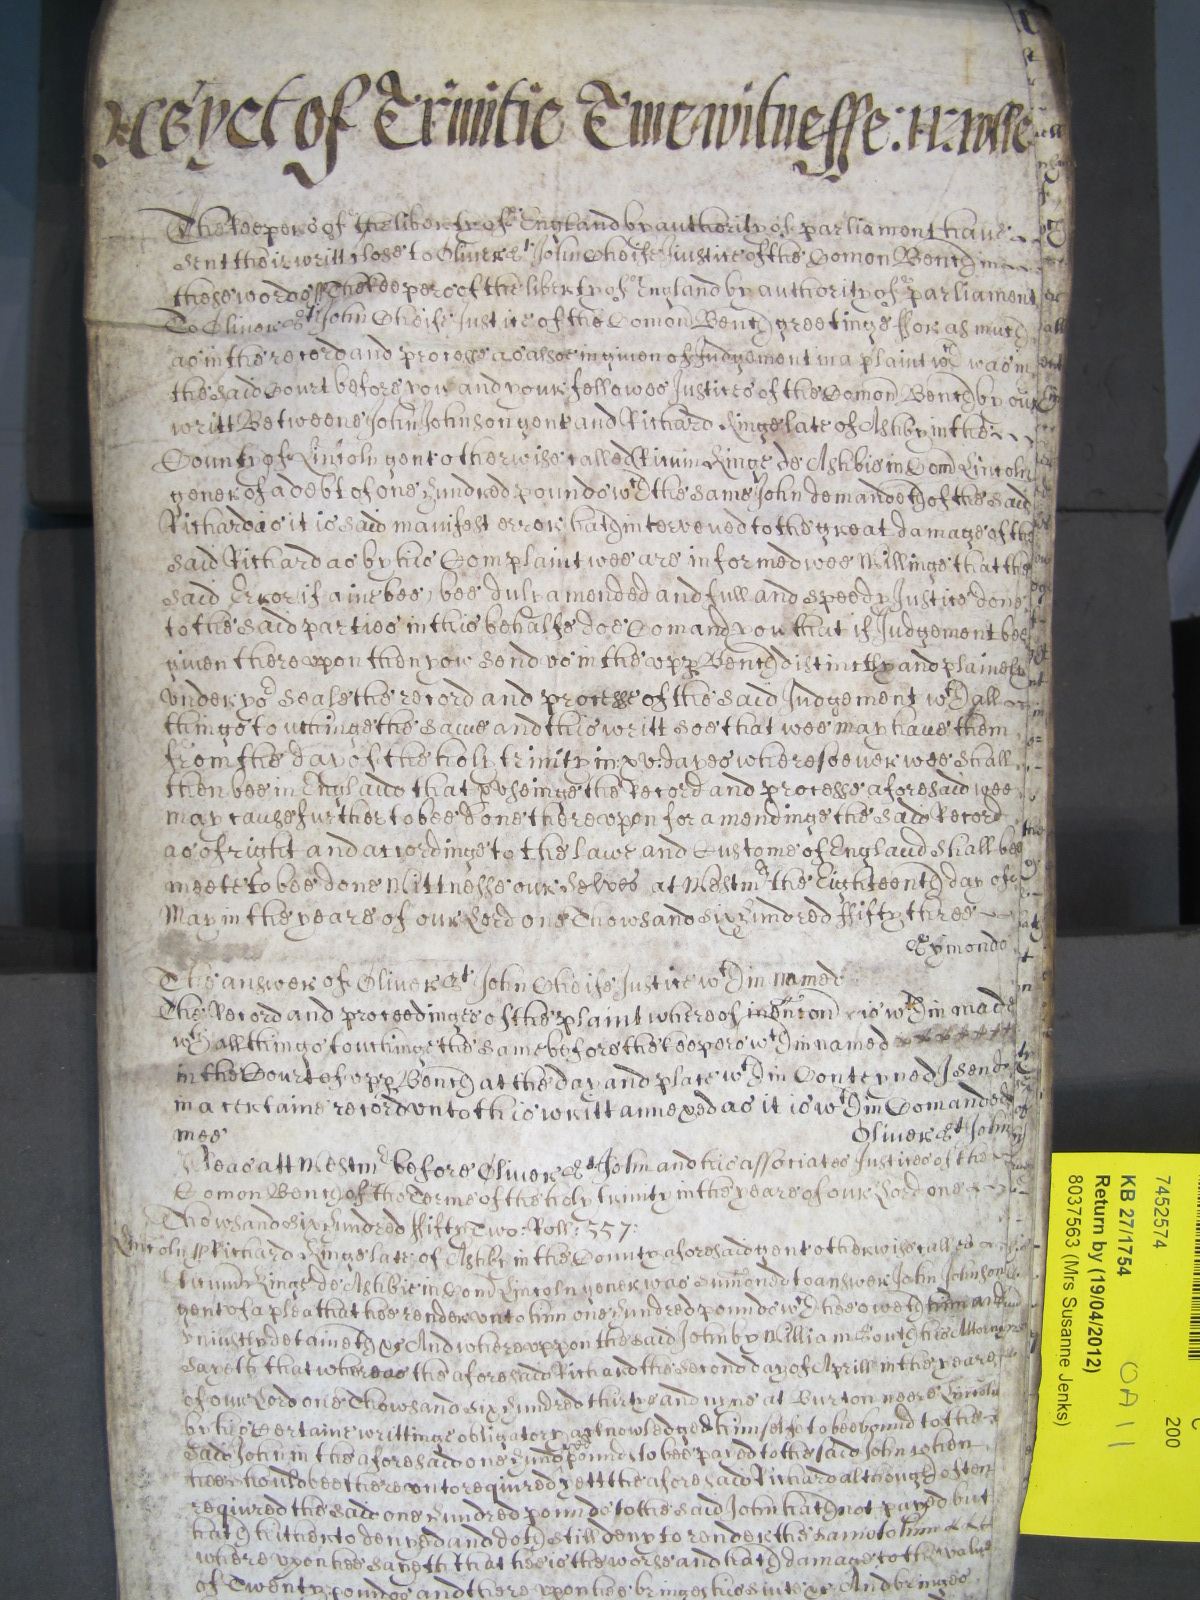 yet of Trinitie Terme witnesse: H: Rolle
The keepers of the liberty of England by authority of parliament have
sent their writt close to Oliver St John Cheife Justice of the Comon Bench in
these words The keepers of the liberty of England by authority of parliament
To Oliver St John Cheife Justice of the Comon Bench greetinge fforasmuch
as in the record and processe as alsoe in given of Judgement in a plaint wch was in
the said Court before you and your fellowes Justices of the Comon Bench by our
writt Betweene John Johnson gent and Richard Kinge late of Ashby in the
County of Lincoln gent otherwise called Ricum Kinge de Ashbie in Com Lincoln
gener of a debt of one hundred pounds wch the same John demandeth of the said
Richard as it is said manifest error hath intervened to the great damage of the
said Richard as by his Complaint wee are informed wee Willinge that the
said Error if anie bee, bee duly amended and full and speedy Justice done
to the said parties in this behalfe doe Comand you that if Judgement bee
given thereupon then you send us in the upp Bench distinctly and plainely
under yor Seale the record and processe of the said Judgement wth all
things touchinge the same and this writt soe that wee may have them
from the day of the holy trinity in xv: dayes wheresoever wee shall
then bee in England that p'useinge the Record and processe aforesaid wee
may cause further to bee done thereupon for amendinge the said Record
as of right and accordinge to the lawe and Custome of England shall bee
meete to bee done Wittnesse our Selves at Westmr the Eighteenth day of
May in the yeare of our Lord one Thowsand six hundred ffifty three
Symonds
The answer of Oliver St John Cheife Justice wthin named
The Record and proceedinges of the plaint whereof mencon is wthin made
wth all things touchinge the same before the keepers wthin named
in the Court of upp Bench at the day and place wthin Conteyned I send
in a certaine record unto this writt annexed as it is wthin Comanded
mee Oliver St John
Pleas att Westmr before Oliver St John and his associates Justices of the
Comon Bench of the Terme of the holy trinity in the yeare of our Lord one
Thowsand six hundred ffifty Two: Roll: 557:
Lincoln Richard Kinge late of Ashby in the County aforesaid gent otherwise called
Ricum Kinge de Ashbie in Com Lincoln gener was sumoned to answer John Johnson
gent of a plea that hee render unto him one hundred pounds wch hee oweth him and
uniustly detaineth &c And whereuppon the said John by William South his Attorney
Sayeth that whereas the aforesaid Richard the second day of Aprill in the yeare
of our Lord one Thowsand six hundred thirty and nyne at Burton neere Lincoln
by his Certaine writtinge obligatory acknowledged himselfe to bee bound to the
said John in the aforesaid one hundred pounds to bee payed to the said John when
hee should bee thereunto required yett the aforesaid Richard although often
required the said one hundred pounds to the said John hath not payed but
hath hitherto denyed and doth still deny to render the same to him
whereuppon hee sayeth that hee is the worse and hath damage to the value
of Twenty pounds and thereuppon hee bringes his suite &c And bringes
7452574
KB 27/1754
Return by (19/04/2012)
8037563 (Mrs Susanne Jenks)
200
OA 11